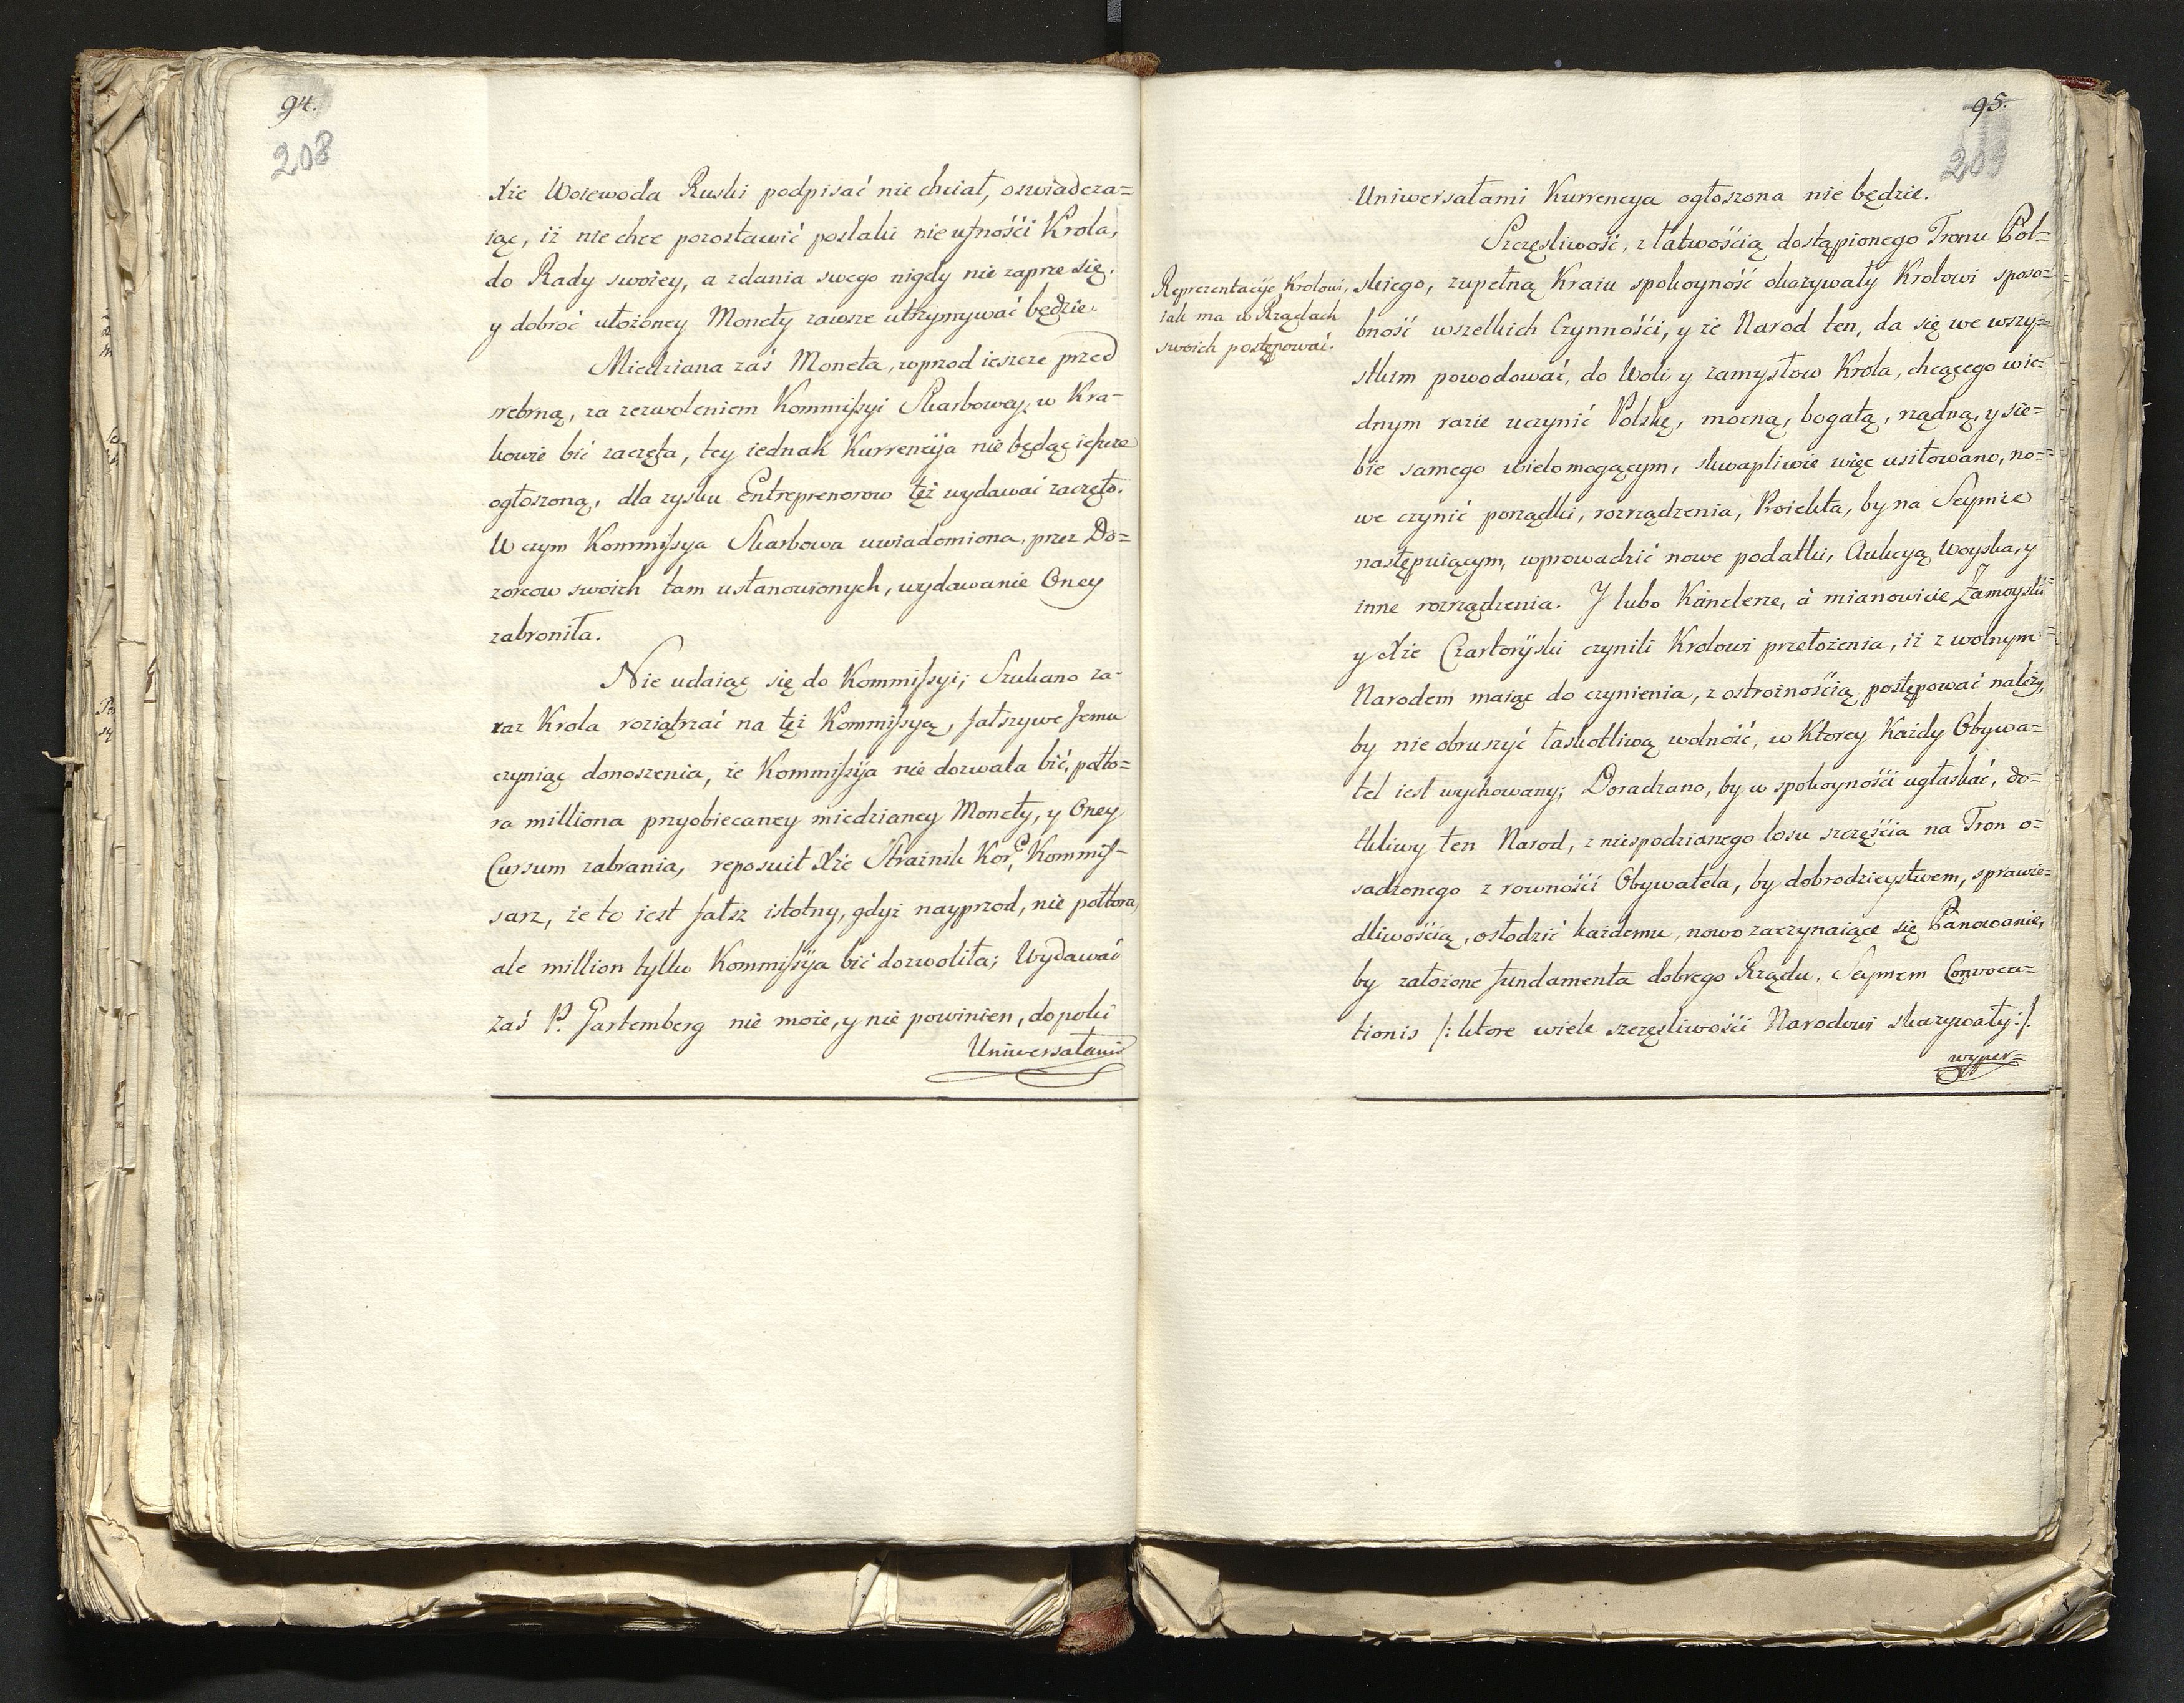 94.
208
Xże Woiewoda Ruski podpisać nie chciał, oswiadcza=
iąc, iż nie chce pozostawić poszlaki nieufnośći Krola,
do Rady swoiey, a zdania swego nigdy nie zaprze się,
y dobroć ułożoney Monety zawsze utrzymywać będzie.
Miedziana zaś Moneta, wprzod ieszcze przed
srebrną, za zezwoleniem Kommissyi Skarbowey, w Kra-
kowie bić zaczęta, tey iednak Kurrencya nie będąc ieszcze
ogłoszoną, dla zysku Entreprenorow też wydawać zaczęto.
W czym Kommissya Skarbowa uwiadomiona, przez Do=
zorcow swoich tam ustanowionych, wydawanie Oney
zabroniła.
Nie udaiąc się do Kommissyi; Szukano za-
raz Krola roziątrzać na tęż Kommissyą, fałszywe Jemu
czyniąc donoszenia, że Kommissyja nie dozwala bić, pułto=
ra milliona przyobiecaney miedzianey Monety, y Oney
Cursum zabrania, reposuit Xże Strażnik Kor, Kommis-
sarz, że to iest fałsz istotny, gdyż nayprzod, nie połtora,
ale million tylko Kommissyja bić dozwoliła; Wydawać
zaś P. Gartemberg nie może, y nie powinien, dopoki
Uniwersałami
95.
209
Uniwersałami Kurrencya ogłoszona nie będzie.
Szczęsliwość, z łatwością dostąpionego Tronu Pol=
Reprezentacye Krolowi,
iak ma w Rządach
swoich postępować.
skiego, zupełną Kraiu spokoyność okazywały Krolowi sposo=
bność wszelkich Czynnośći, y że Narod ten, da się we wszy=
stkim powodować, do Woli y zamysłow Krola, chcącego wie=
dnym razie uczynić Polskę, mocną, bogatą, rządną, y sie=
bie samego wielomogącym, skwapliwie więc usiłowano, no=
we czynić porządki, rozrządzenia, Proiekta, by na Seymie
następuiącym, wprowadzić nowe podatki, Aukcyą Woyska, y
inne rozrządzenia. J lubo Kanclerze, à mianowicie Zamoyski
y Xże Czartoryski czynili Krolowi przełożenia, iż z wolnym
Narodem maiąc do czynienia, z ostrożnością postępować należy,
by nie obruszyć łaskotliwą wolność, w Ktorey Każdy Obywa=
tel iest wychowany; Doradzano, by w spokoynośći ugłaskać, do=
tkliwy ten Narod, z niespodzianego losu szczęścia na Tron o=
sadzonego z rownośći Obywatela, by dobrodzieystwem, sprawie=
dliwością, osłodzić każdemu, nowo zaczynaiące się Panowanie,
by założone fundamenta dobrego Rządu, Seymem Convoca=
tionis /: ktore wiele szczęsliwośći Narodowi skazywały :/.
wyper=